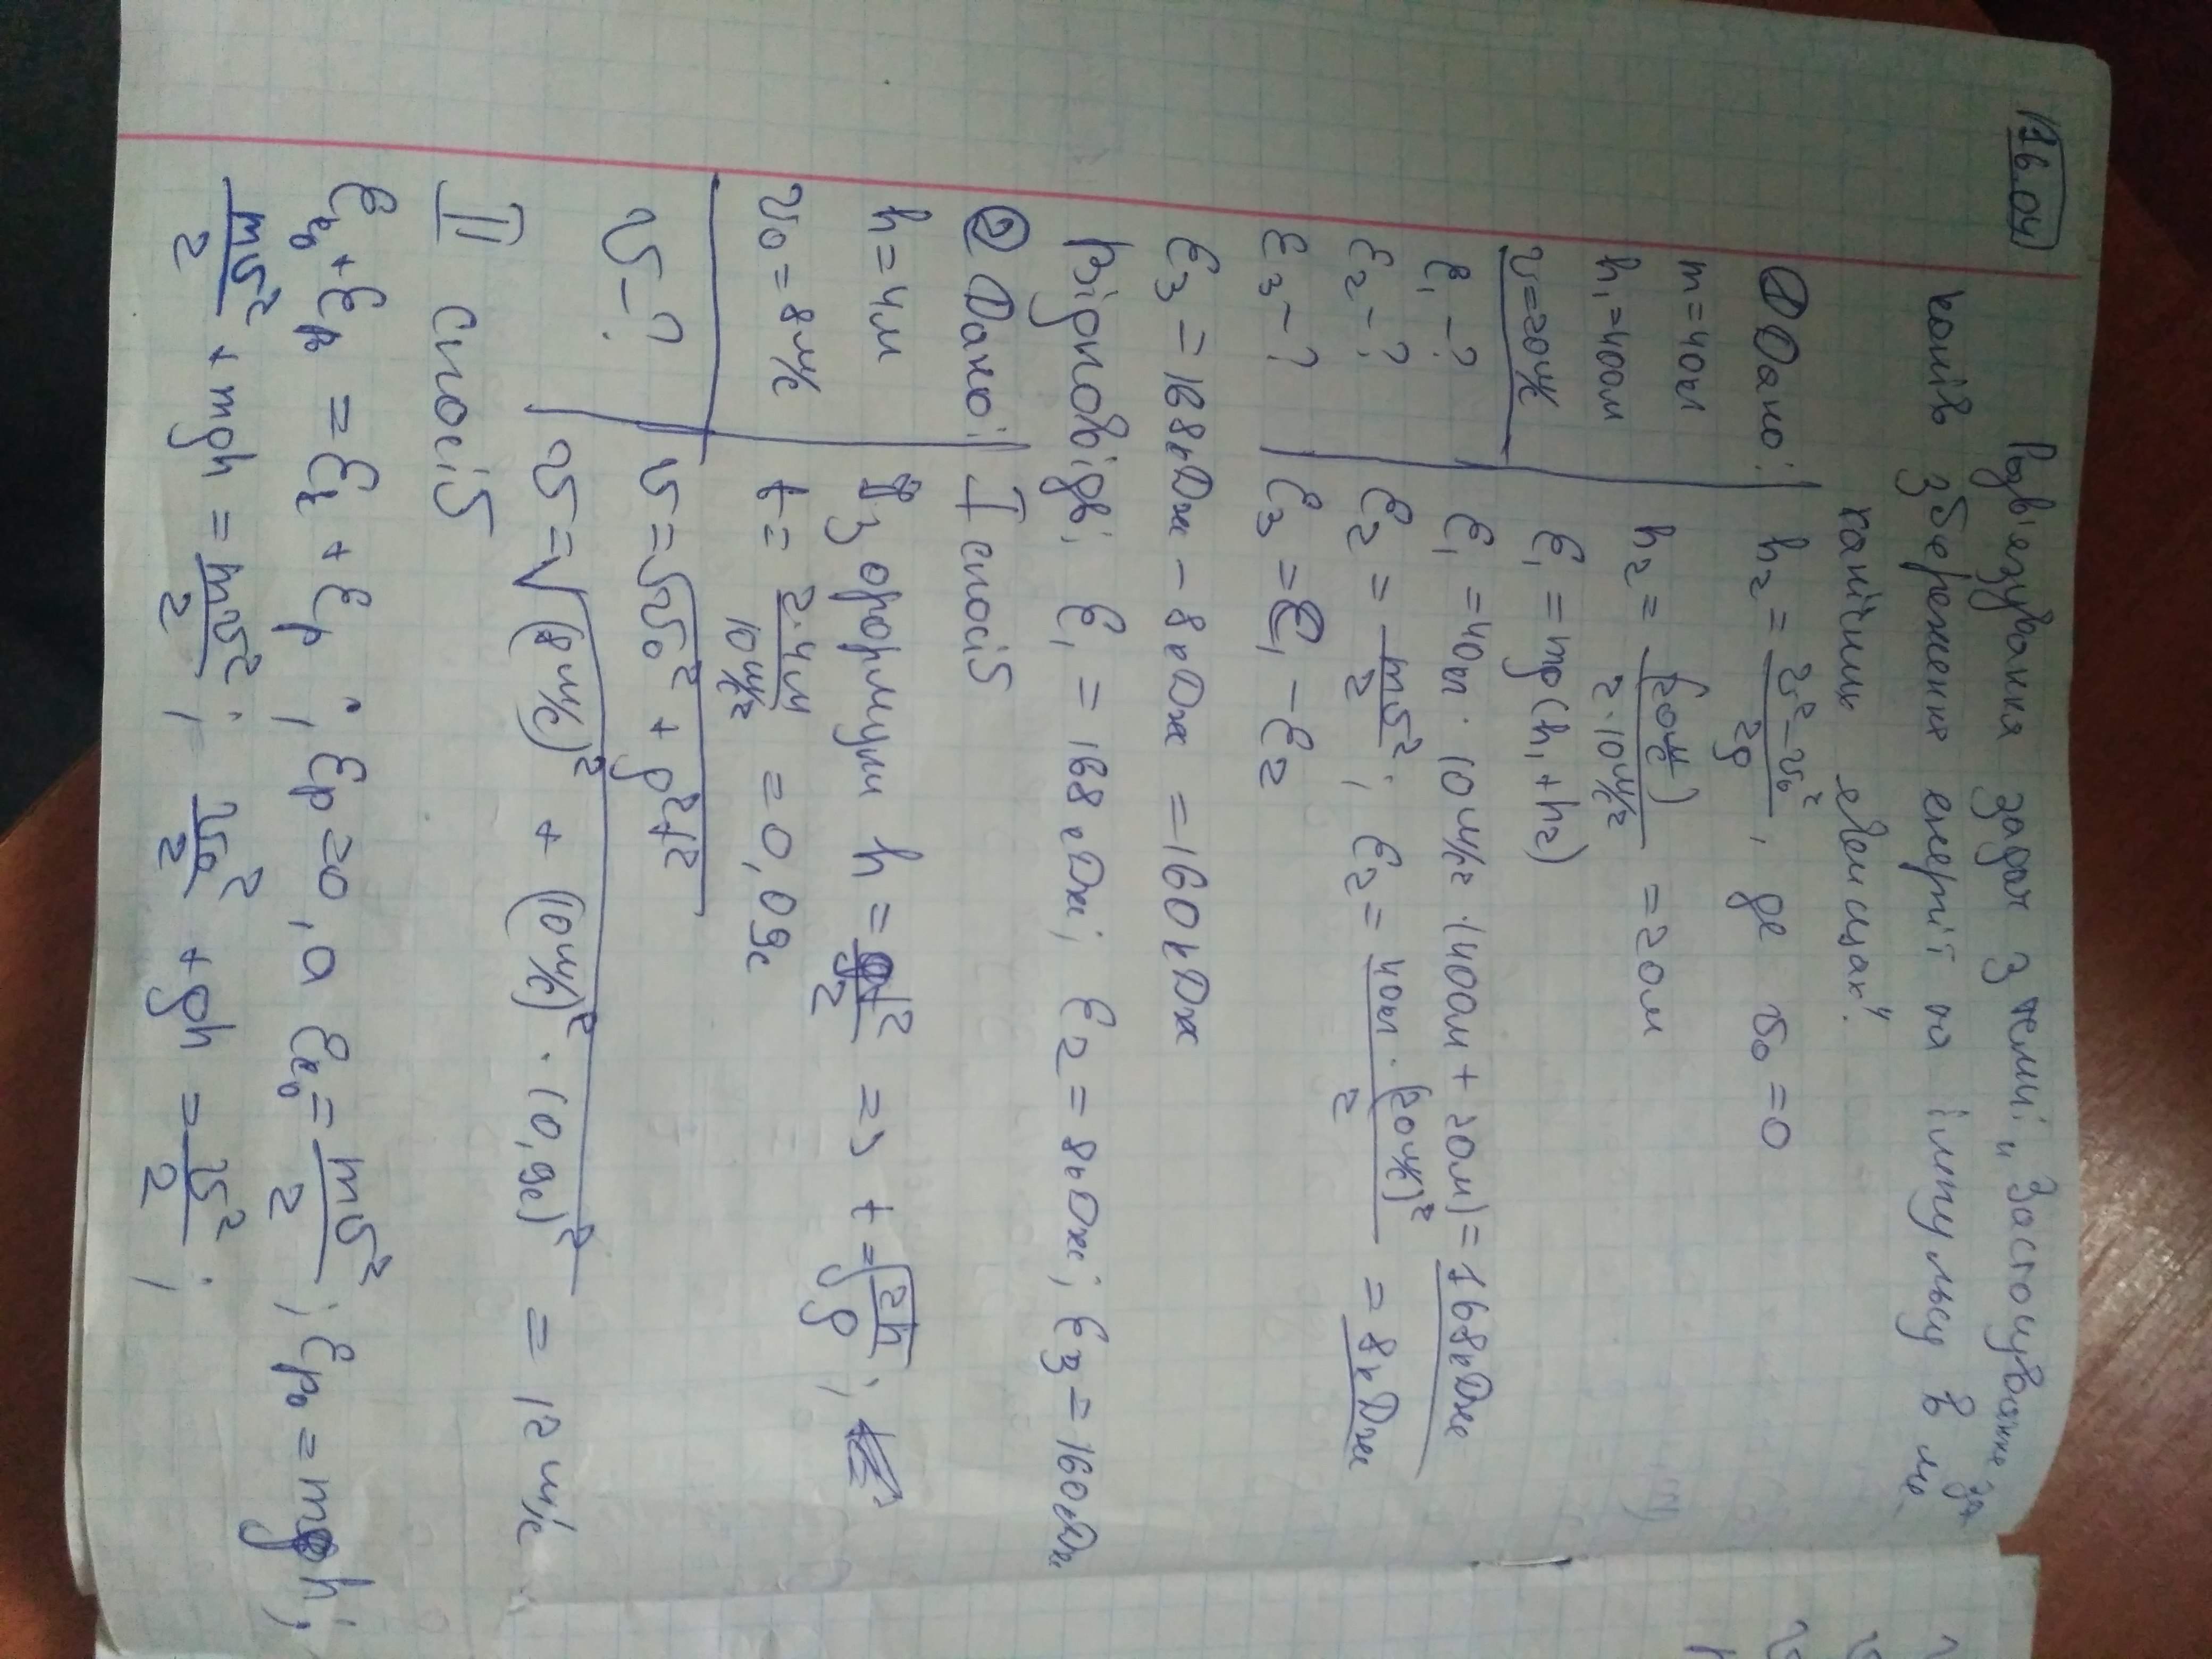 16.04
Розв'язування задач з теми „Застосування за-
конів збереження енергії та імпульсу в ме-
ханічних явищах".
① Дано:
m=40кг
h₁=400м
v=20м/с
E₁ -?
E₂ -?
E₃ -?
h₂ = (v²-v₀²)/2g , де v₀ =0
h₂ = (20м/с)²/(2·10м/с²) = 20м
E₁ = mg(h₁+h₂)
E₁ =40кг · 10м/с² ·(400м + 20м) = 168кДж
E₂ = mv²/2 ; E₂ = 40кг · (20м/с)²/2 = 8кДж
E₃ = E₁ - E₂
E₃ = 168кДж - 8кДж =160кДж
Відповідь: E₁ = 168кДж; E₂ = 8кДж; E₃ =160кДж
② Дано:
h=4м
v₀ = 8м/с
v-?
I спосіб
З формули h = gt²/2 => t = √2h/g ;
t = 2·4м/10м/с² = 0,09с
v=√v₀² + g²t²
v=√(8м/с)² + (10м/с)² · (0,9с)² = 12 м/с
II спосіб
Eк₀+Eр₀ = Eк + Eр ; Eр=0, а Eк₀= mv²/2 ; Eр₀ = mgh;
mv²/2 + mgh = mv²/2 ; v₀²/2 + gh = v²/2 ;